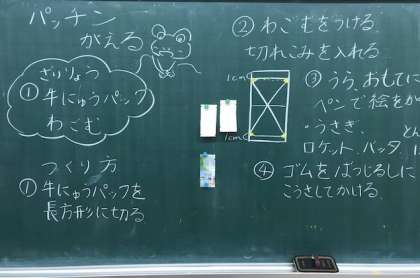 パッチン
がえる
ざいりょう
① 牛にゅうパック
わごむ
つくり方
① 牛にゅうパックを
長方形に切る
② わごむをつける
切れこみを入れる
1cm
1cm
③ うら、おもてに
ペンで絵をか
・うさぎ、
ロケット、バッタ
④ ゴムをばつじるしに
こうさしてかける。